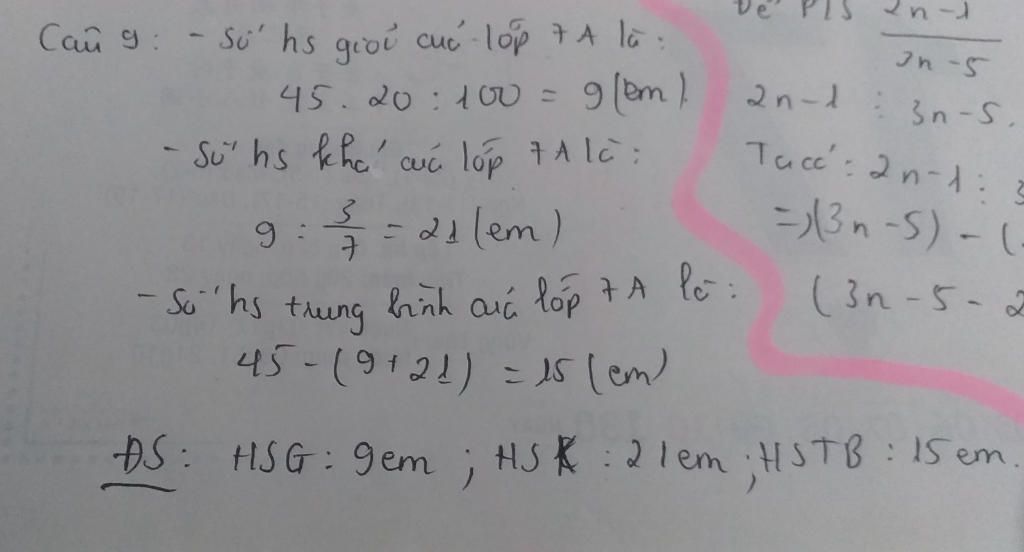 Câu 9: - Số hs giỏi cuả lớp 7A là:
45 . 20 : 100 = 9 (em)
- Số hs khá cuả lớp 7A là:
9 : 3/7 = 21 (em)
- Số hs trung bình cuả lớp 7A là:
45 - (9 + 21) = 15 (em)
ĐS: HSG: 9em ; HSK : 21em ; HSTB : 15em.
Để PTS 2n-1
3n-5
2n-1 : 3n-5.
Ta có: 2n-1 : 3
=> (3n-5) - (
(3n-5-2